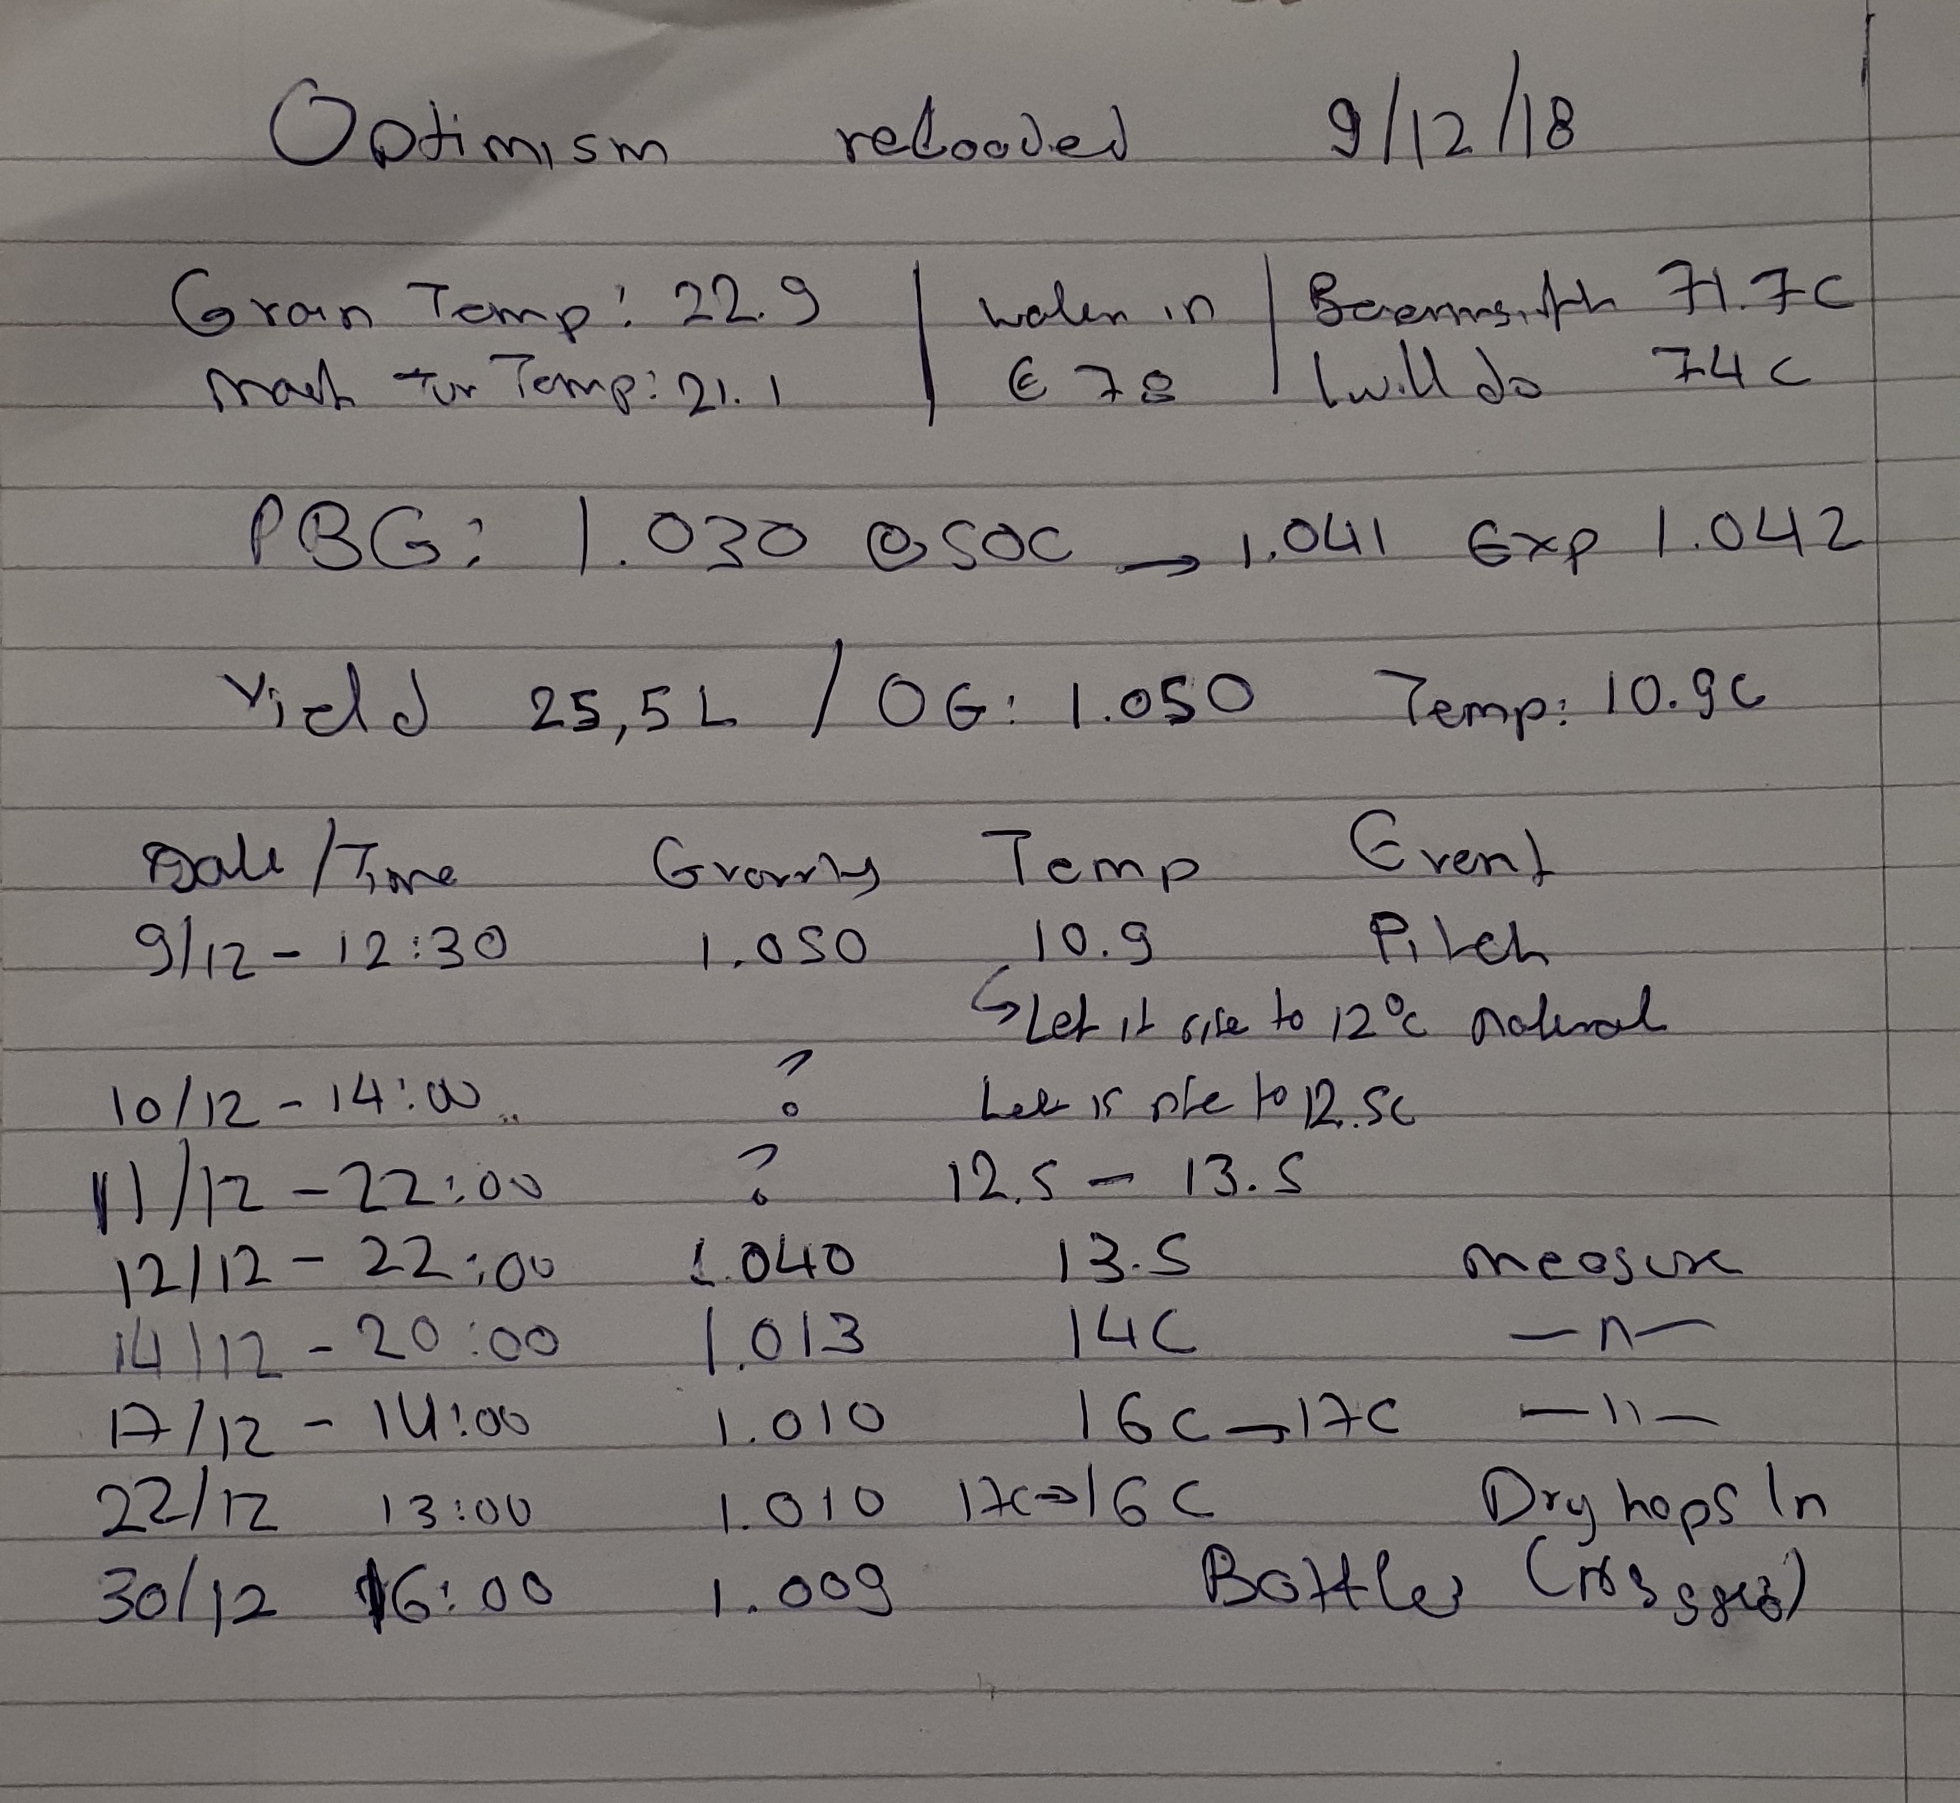 Optimism reloaded 9/12/18
Grain Temp: 22.9 | water in | Beersmith 71.7C
Mash tun Temp: 21.1 | @ 78 | I will do 74C
PBG: 1.030 @50C → 1.041 Exp 1.042
Yield 25,5L / OG: 1.050 Temp: 10.9C
Date/Time Gravity Temp Event
9/12 - 12:30 1.050 10.9 Pitch
↳ Let it rise to 12°C natural
10/12 - 14:00 ? Let is rise to 12.5C
11/12 - 22:00 ? 12.5 - 13.5
12/12 - 22:00 1.040 13.5 measure
14/12 - 20:00 1.013 14C -11-
17/12 - 14:00 1.010 16C → 17C -11-
22/12 13:00 1.010 17C → 16C Dry hops In
30/12 16:00 1.009 Bottles